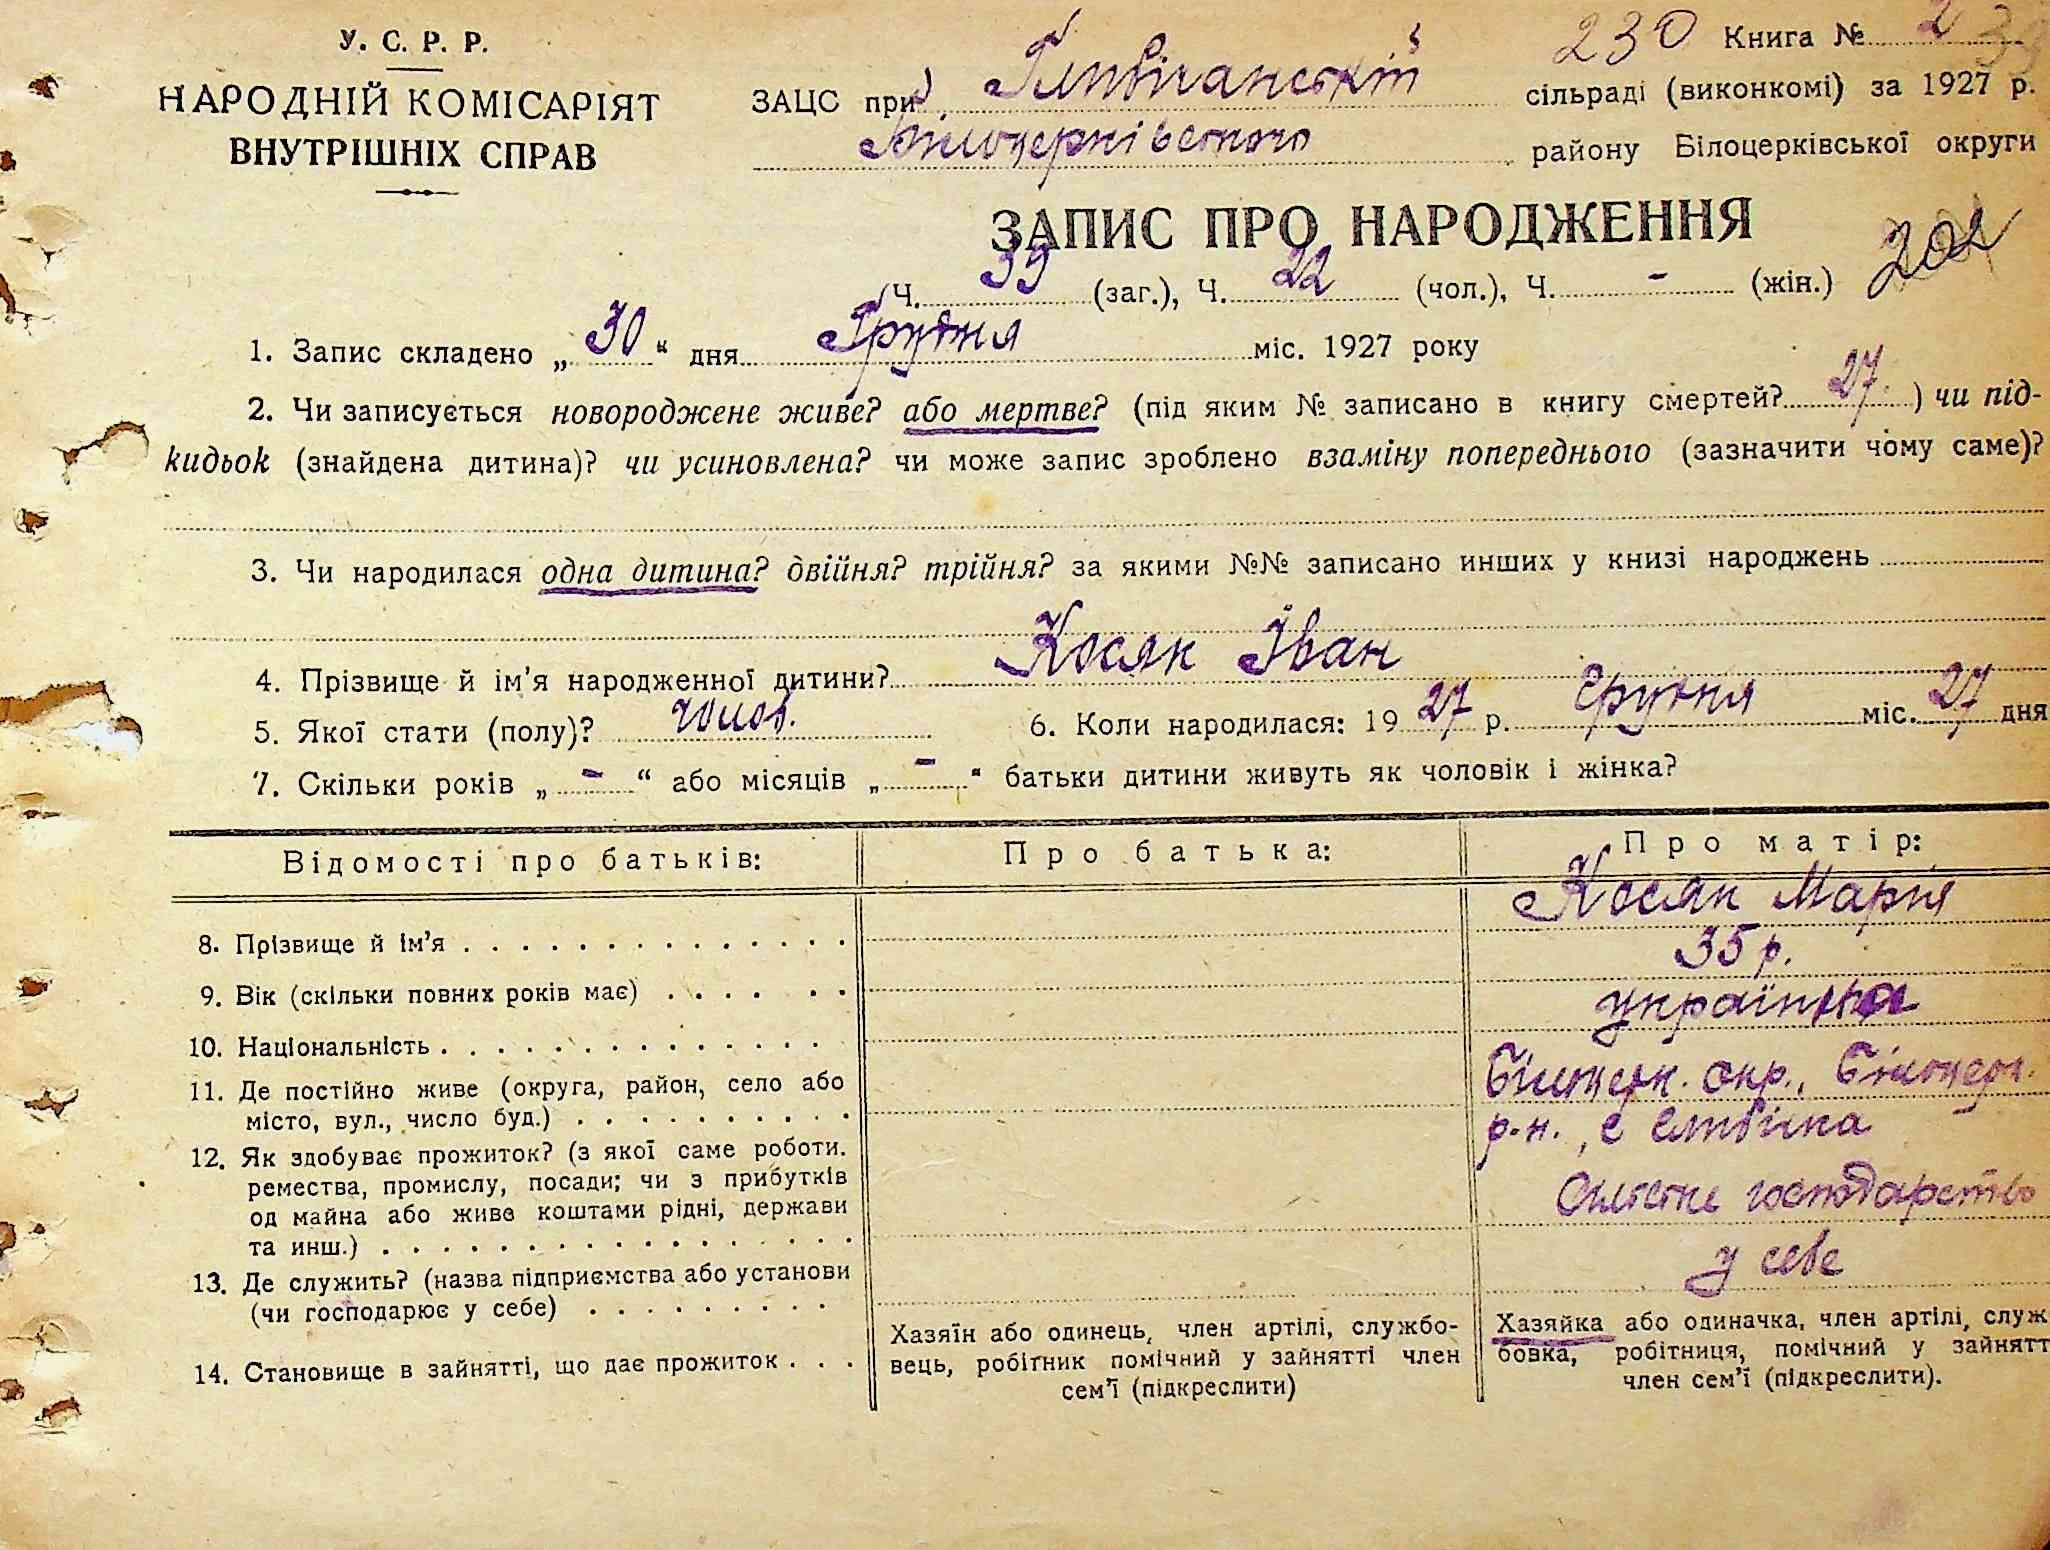 У. С. Р. Р.
НАРОДНІЙ КОМІСАРІЯТ
ВНУТРІШНІХ СПРАВ
230 Книга № 2
ЗАЦС при сільраді (виконкомі) за 1927 р.
Білоцерківського району Білоцерківської округи
ЗАПИС ПРО НАРОДЖЕННЯ
Ч. 39 (заг.), Ч. 22 (чол.), Ч. - (жін.)
1. Запис складено „ 30 “ дня Грудня міс. 1927 року
2. Чи записується новороджене живе? або мертве? (під яким № записано в книгу смертей? 27 ) чи під-
кидьок (знайдена дитина)? чи усиновлена? чи може запис зроблено взаміну попереднього (зазначити чому саме)?
3. Чи народилася одна дитина? двійня? трійня? за якими №№ записано инших у книзі народжень
4. Прізвище й ім’я народженної дитини? Косяк Іван
5. Якої стати (полу)? чолов. 6. Коли народилася: 19 27 р. Грудня міс. 27 дня
7. Скільки років „ - “ або місяців „ - “ батьки дитини живуть як чоловік і жінка?
Відомості про батьків: Про батька: Про матір:
8. Прізвище й ім’я Косяк Марія
9. Вік (скільки повних років має) 35 р.
10. Національність українка
11. Де постійно живе (округа, район, село або Білоцерк. окр., Білоцерк.
місто, вул., число буд.) р-н., с
12. Як здобуває прожиток? (з якої саме роботи.
ремества, промислу, посади; чи з прибутків Сільське господарство
од майна або живе коштами рідні, держави
та инш.)
13. Де служить? (назва підприємства або установи у себе
(чи господарює у себе)
14. Становище в зайнятті, що дає прожиток
Хазяїн або одинець, член артілі, службо-
вець, робітник помічний у зайнятті член
сем’ї (підкреслити)
Хазяйка або одиначка, член артілі, служ
бовка, робітниця, помічний у зайнятт
член сем’ї (підкреслити).